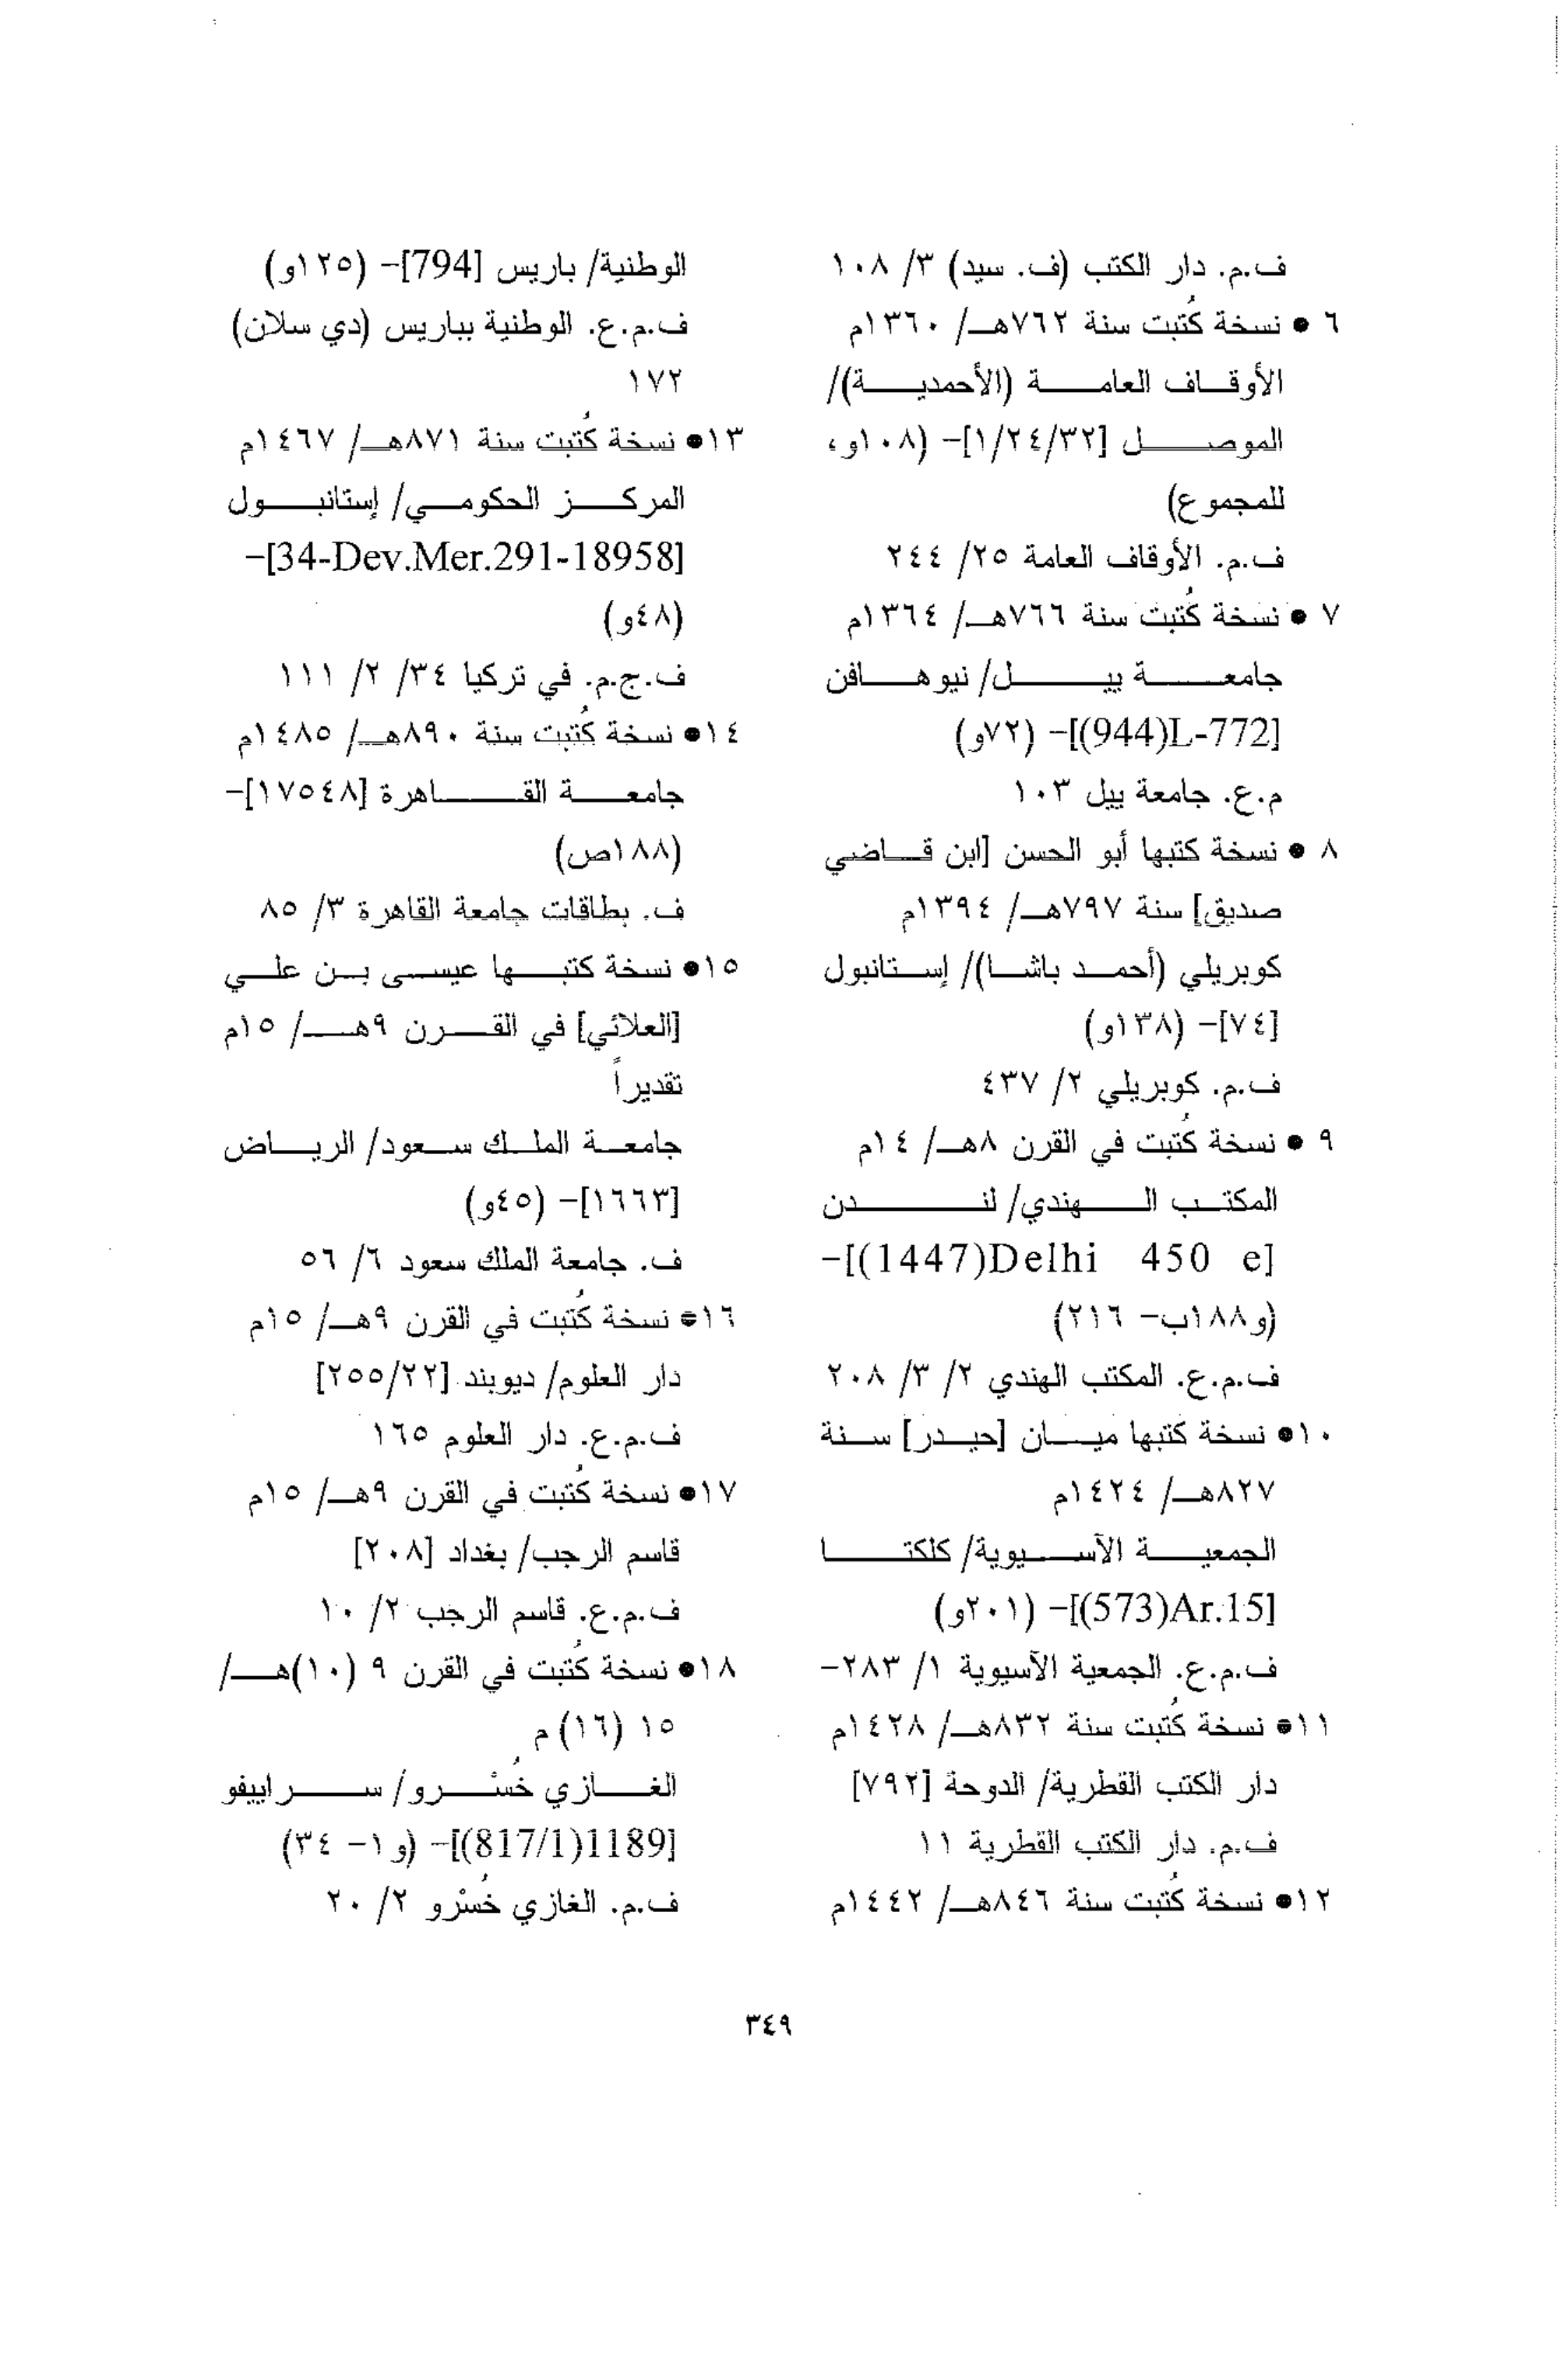 ف.م. دار الكتب (ف. سيد) ٣/ ١٠٨
٦ • نسخة كُتبت سنة ٧٦٢هـ/ ١٣٦٠م
الأوقاف العامة (الأحمدية)/
الموصل [١/٢٤/٣٢]- (١٠٨و،
للمجموع)
ف.م. الأوقاف العامة ٢٥/ ٢٤٤
٧ • نسخة كُتبت سنة ٧٦٦هـ/ ١٣٦٤م
جامعة ييل/ نيوهافن
[944)L-772)]- (٧٢و)
م.ع. جامعة ييل ١٠٣
٨ • نسخة كتبها أبو الحسن [ابن قاضي
صديق] سنة ٧٩٧هـ/ ١٣٩٤م
كوبريلي (أحمد باشا)/ إستانبول
[٧٤]- (١٣٨و)
ف.م. كوبريلي ٢/ ٤٣٧
٩ • نسخة كُتبت في القرن ٨هـ/ ١٤م
المكتب الهندي/ لندن
[(1447)Delhi 450 e]-
(و١٨٨ب- ٢١٦)
ف.م.ع. المكتب الهندي ٢/ ٣/ ٢٠٨
١٠• نسخة كتبها ميان [حيدر] سنة
٨٢٧هـ/ ١٤٢٤م
الجمعية الآسيوية/ كلكتا
[(573)Ar.15]- (٢٠١و)
ف.م.ع. الجمعية الآسيوية ١/ ٢٨٣-
١١• نسخة كُتبت سنة ٨٣٢هـ/ ١٤٢٨م
دار الكتب القطرية/ الدوحة [٧٩٢]
ف.م. دار الكتب القطرية ١١
١٢• نسخة كُتبت سنة ٨٤٦هـ/ ١٤٤٢م
الوطنية/ باريس [794]- (١٢٥و)
ف.م.ع. الوطنية بباريس (دي سلان)
١٧٢
١٣• نسخة كُتبت سنة ٨٧١هـ/ ١٤٦٧م
المركز الحكومي/ إستانبول
[34-Dev.Mer.291-18958]-
(٤٨و)
ف.ج.م. في تركيا ٣٤/ ٢/ ١١١
١٤• نسخة كُتبت سنة ٨٩٠هـ/ ١٤٨٥م
جامعة القاهرة [١٧٥٤٨]-
(١٨٨ص)
ف. بطاقات جامعة القاهرة ٣/ ٨٥
١٥• نسخة كتبها عيسى بن علي
[العلائي] في القرن ٩هـ/ ١٥م
تقديراً
جامعة الملك سعود/ الرياض
[١٦٦٣]- (٤٥و)
ف. جامعة الملك سعود ٦/ ٥٦
١٦• نسخة كُتبت في القرن ٩هـ/ ١٥م
دار العلوم/ ديوبند [٢٥٥/٢٢]
ف.م.ع. دار العلوم ١٦٥
١٧• نسخة كُتبت في القرن ٩هـ/ ١٥م
قاسم الرجب/ بغداد [٢٠٨]
ف.م.ع. قاسم الرجب ٢/ ١٠
١٨• نسخة كُتبت في القرن ٩ (١٠)هـ/
١٥ (١٦) م
الغازي خُسْرو/ سراييفو
[(817/1)1189]- (و١- ٣٤)
ف.م. الغازي خُسْرو ٢/ ٢٠
٣٤٩